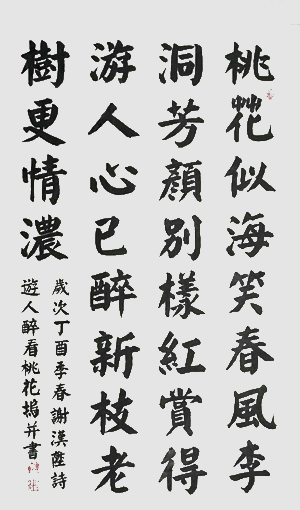 桃花似海笑春風李
洞芳顏別樣紅賞得
游人心已醉新枝老
樹更情濃
歲次丁酉季春謝漢蓙詩
遊人醉看桃花塢并書